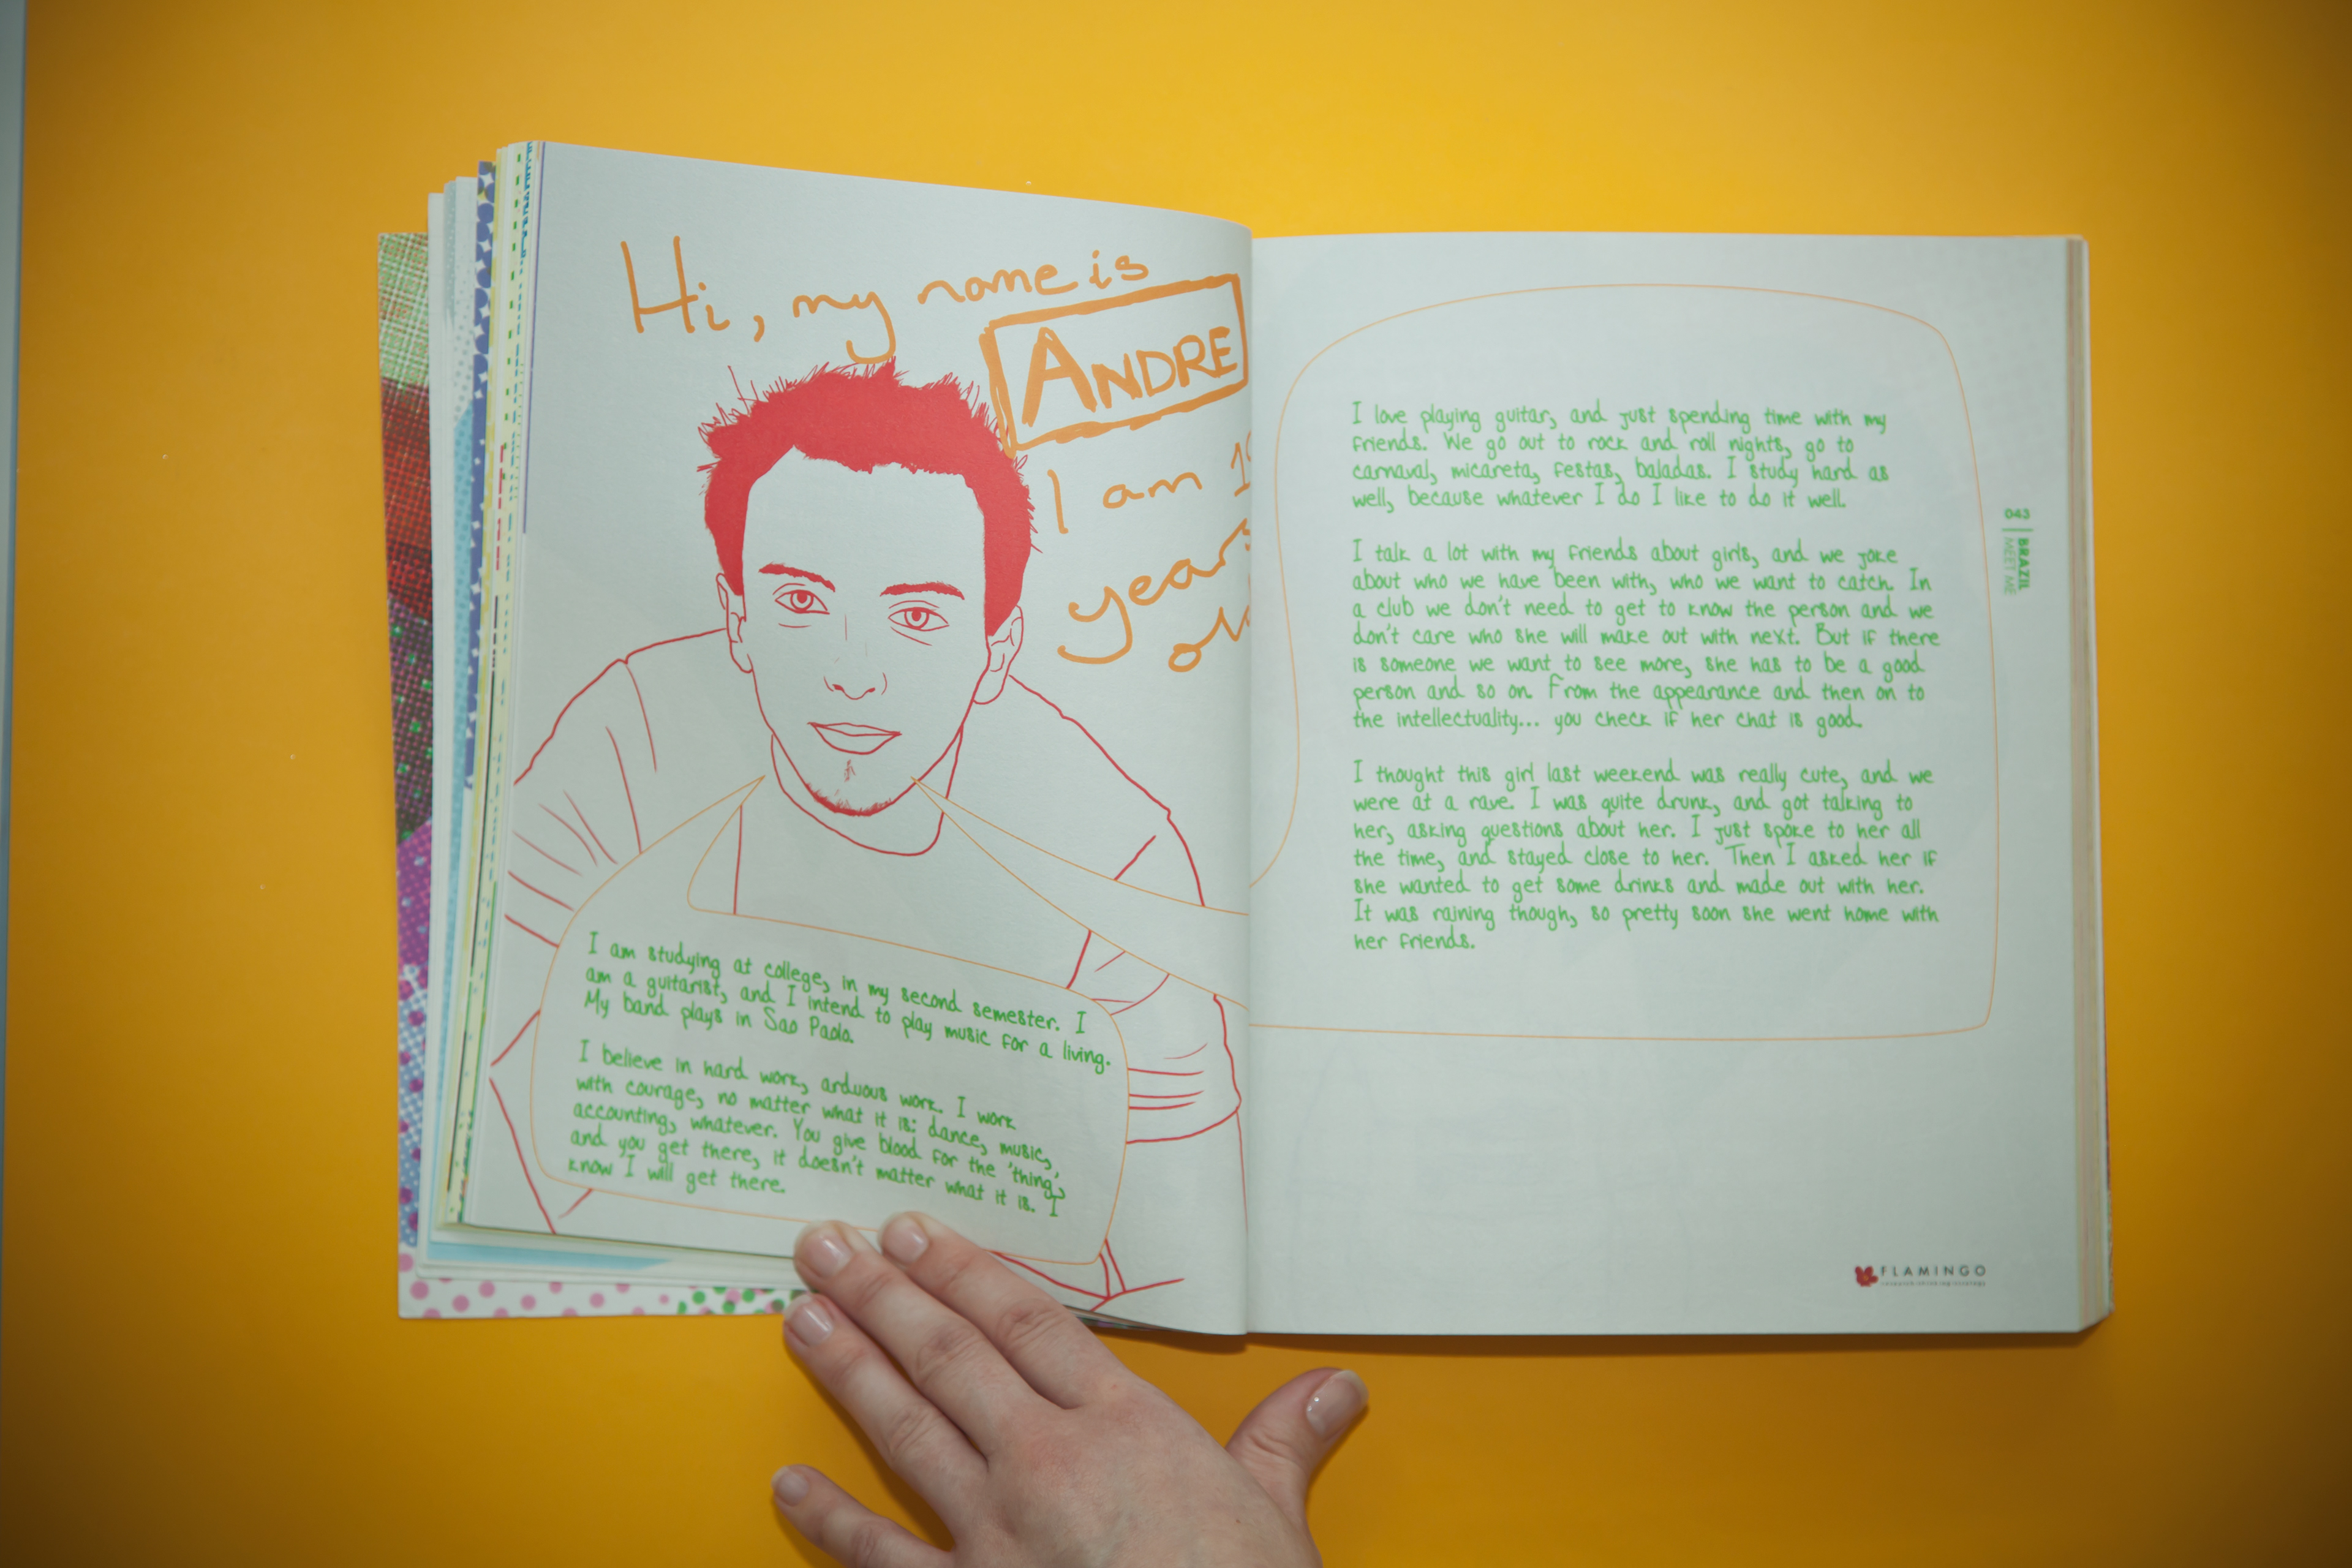 Hi, my name is
ANDRE
I am
years
I am studying at college, in my second semester. I
am a guitarist, and I intend to play music for a living.
My band plays in Sao Paolo.
I believe in hard work, arduous work. I work
with courage, no matter what it is: dance, music,
accounting, whatever. You give blood for the 'thing,'
and you get there, it doesn't matter what it is. I
know I will get there.
I love playing guitar, and just spending time with my
friends. We go out to rock and roll nights, go to
carnaval, micareta, festas, baladas. I study hard as
well, because whatever I do I like to do it well.
I talk a lot with my friends about girls, and we joke
about who we have been with, who we want to catch. In
a club we don't need to get to know the person and we
don't care who she will make out with next. But if there
is someone we want to see more, she has to be a good
person and so on. From the appearance and then on to
the intellectuality... you check if her chat is good.
I thought this girl last weekend was really cute, and we
were at a rave. I was quite drunk, and got talking to
her, asking questions about her. I just spoke to her all
the time, and stayed close to her. Then I asked her if
she wanted to get some drinks and made out with her.
It was raining though, so pretty soon she went home with
her friends.
043
BRAZIL
MEET ME
FLAMINGO
research·thinking·strategy